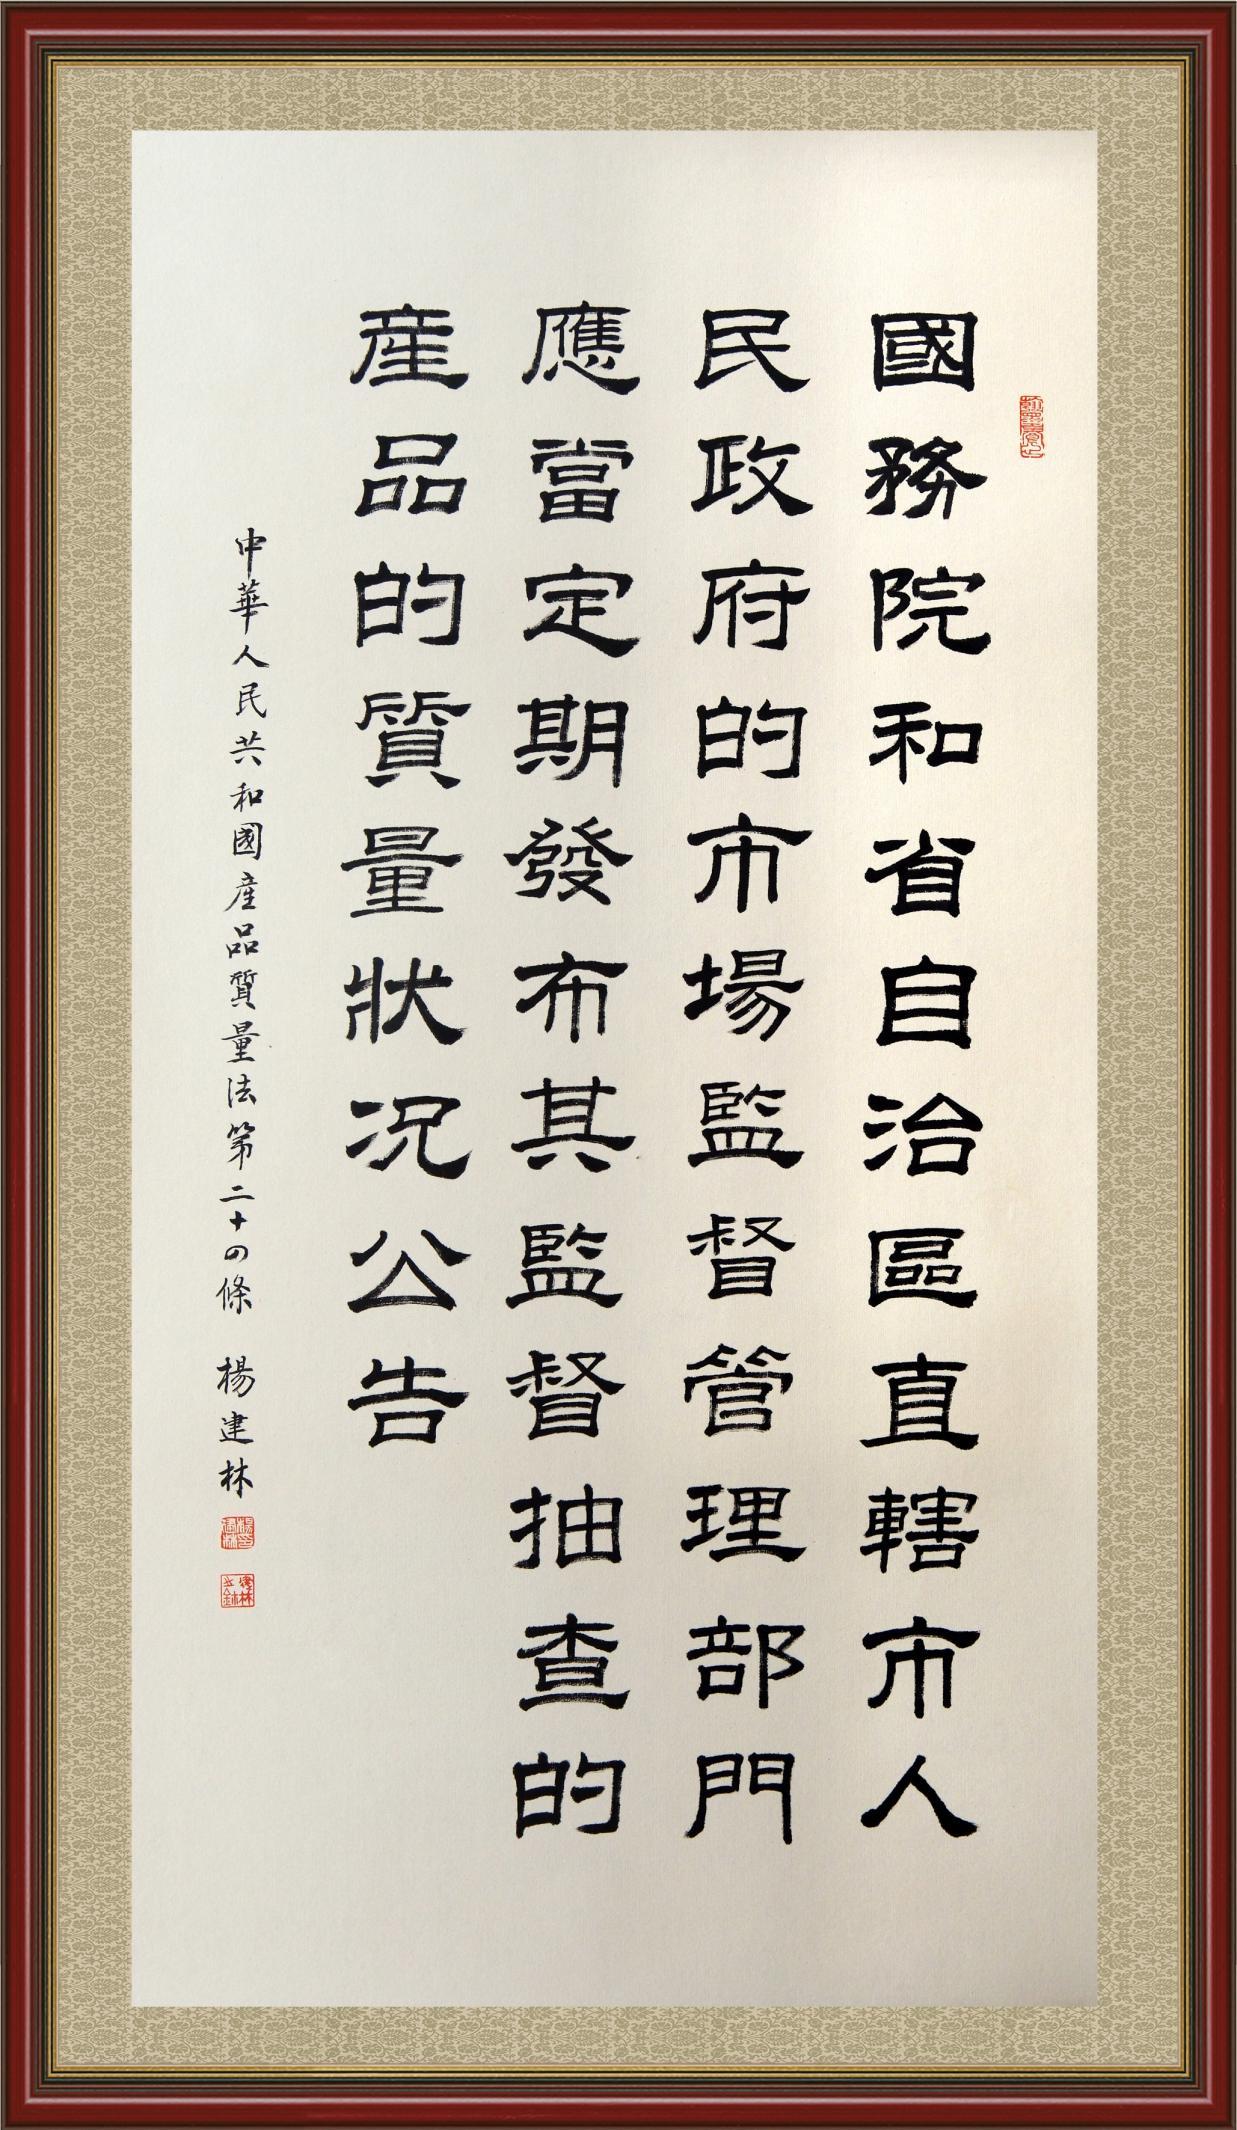 國務院和省自治區直轄市人
民政府的市場監督管理部門
應當定期發布其監督抽查的
産品的質量狀况公告
中華人民共和國産品質量法第二十四條 楊建林